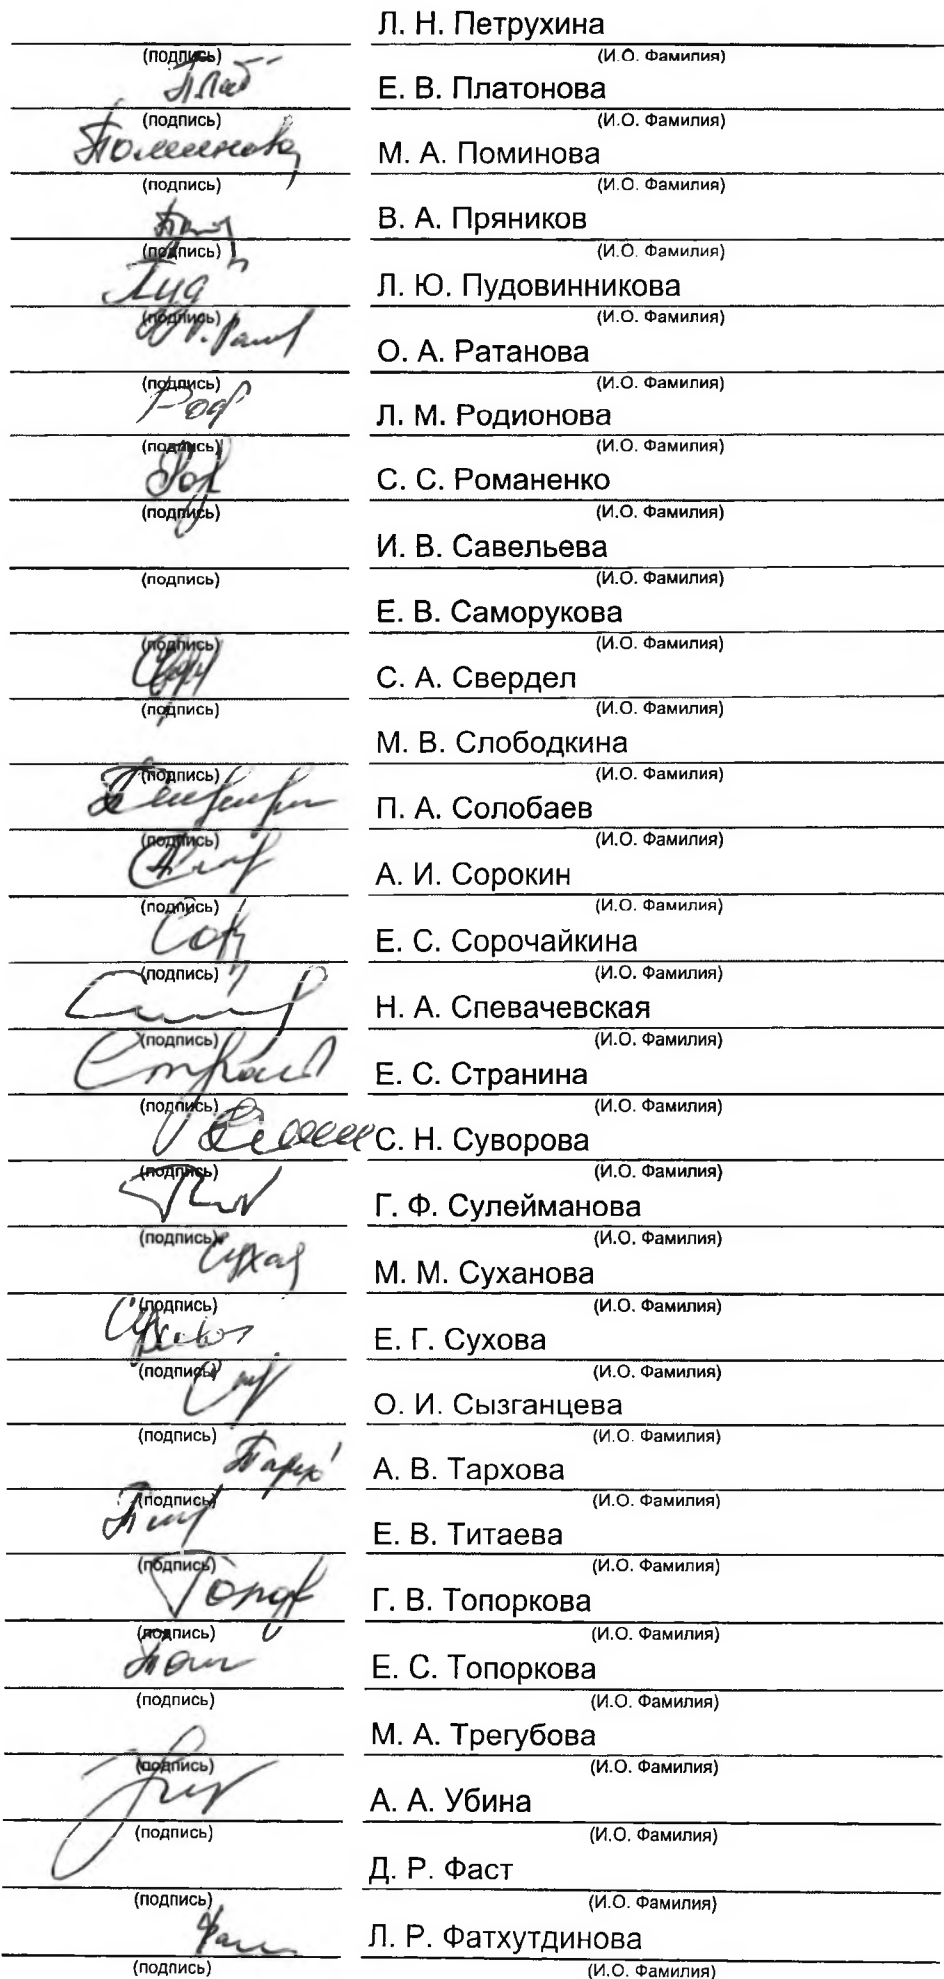 Л. Н. Петрухина
(подпись) (И.О. Фамилия)
Е. В. Платонова
(подпись) (И.О. Фамилия)
Поминова М. А. Поминова
(подпись) (И.О. Фамилия)
В. А. Пряников
(подпись) (И.О. Фамилия)
Пуд Л. Ю. Пудовинникова
(подпись) (И.О. Фамилия)
О. А. Ратанова
(подпись) (И.О. Фамилия)
Род Л. М. Родионова
(подпись) (И.О. Фамилия)
С. С. Романенко
(подпись) (И.О. Фамилия)
И. В. Савельева
(подпись) (И.О. Фамилия)
Е. В. Саморукова
(подпись) (И.О. Фамилия)
С. А. Свердел
(подпись) (И.О. Фамилия)
М. В. Слободкина
(подпись) (И.О. Фамилия)
П. А. Солобаев
(подпись) (И.О. Фамилия)
А. И. Сорокин
(подпись) (И.О. Фамилия)
Е. С. Сорочайкина
(подпись) (И.О. Фамилия)
Н. А. Спевачевская
(подпись) (И.О. Фамилия)
Е. С. Странина
(подпись) (И.О. Фамилия)
С. Н. Суворова
(подпись) (И.О. Фамилия)
Г. Ф. Сулейманова
(подпись) (И.О. Фамилия)
М. М. Суханова
(подпись) (И.О. Фамилия)
Е. Г. Сухова
(подпись) (И.О. Фамилия)
О. И. Сызганцева
(подпись) (И.О. Фамилия)
А. В. Тархова
(подпись) (И.О. Фамилия)
Е. В. Титаева
(подпись) (И.О. Фамилия)
Г. В. Топоркова
(подпись) (И.О. Фамилия)
Е. С. Топоркова
(подпись) (И.О. Фамилия)
М. А. Трегубова
(подпись) (И.О. Фамилия)
А. А. Убина
(подпись) (И.О. Фамилия)
Д. Р. Фаст
(подпись) (И.О. Фамилия)
Л. Р. Фатхутдинова
(подпись) (И.О. Фамилия)